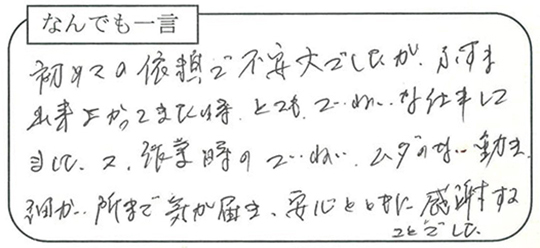 なんでも一言
初めての依頼で不安大でしたが、ふすま
出来上がってきた時、とてもていねいな仕事して
ました。又、張替時のていねい、ムダのない動き、
細かい所まで気が届き、安心とともに感謝する
ことでした